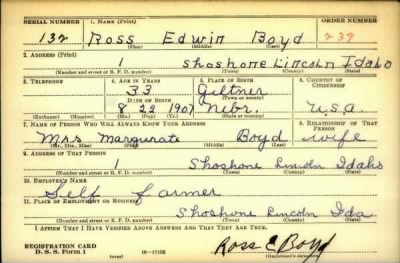 SERIAL NUMBER 1. NAME (Print) ORDER NUMBER
132 Ross Edwin Boyd 239
(First) (Middle) (Last)
2. ADDRESS (Print)
1 Shoshone Lincoln Idaho
(Number and street or R. F. D. number) (Town) (County) (State)
3. TELEPHONE 4. AGE IN YEARS 5. PLACE OF BIRTH 6. COUNTRY OF CITIZENSHIP
33 Giltner
DATE OF BIRTH (Town or county)
8 23 1907 Nebr. U.S.A
(Exchange) (Number) (Mo.) (Day) (Yr.) (State or country)
7. NAME OF PERSON WHO WILL ALWAYS KNOW YOUR ADDRESS 8. RELATIONSHIP OF THAT PERSON
Mrs Margurate Boyd wife
(Mr., Mrs., Miss) (First) (Middle) (Last)
9. ADDRESS OF THAT PERSON
1 Shoshone Lincoln Idaho
(Number and street or R. F. D. number) (Town) (County) (State)
10. EMPLOYER'S NAME
Self farmer
11. PLACE OF EMPLOYMENT OR BUSINESS
Shoshone Lincoln Ida
(Number and street or R. F. D. number) (Town) (County) (State)
I AFFIRM THAT I HAVE VERIFIED ABOVE ANSWERS AND THAT THEY ARE TRUE.
REGISTRATION CARD
D. S. S. Form 1 16—17105 Ross E Boyd
(over) (Registrant's signature)